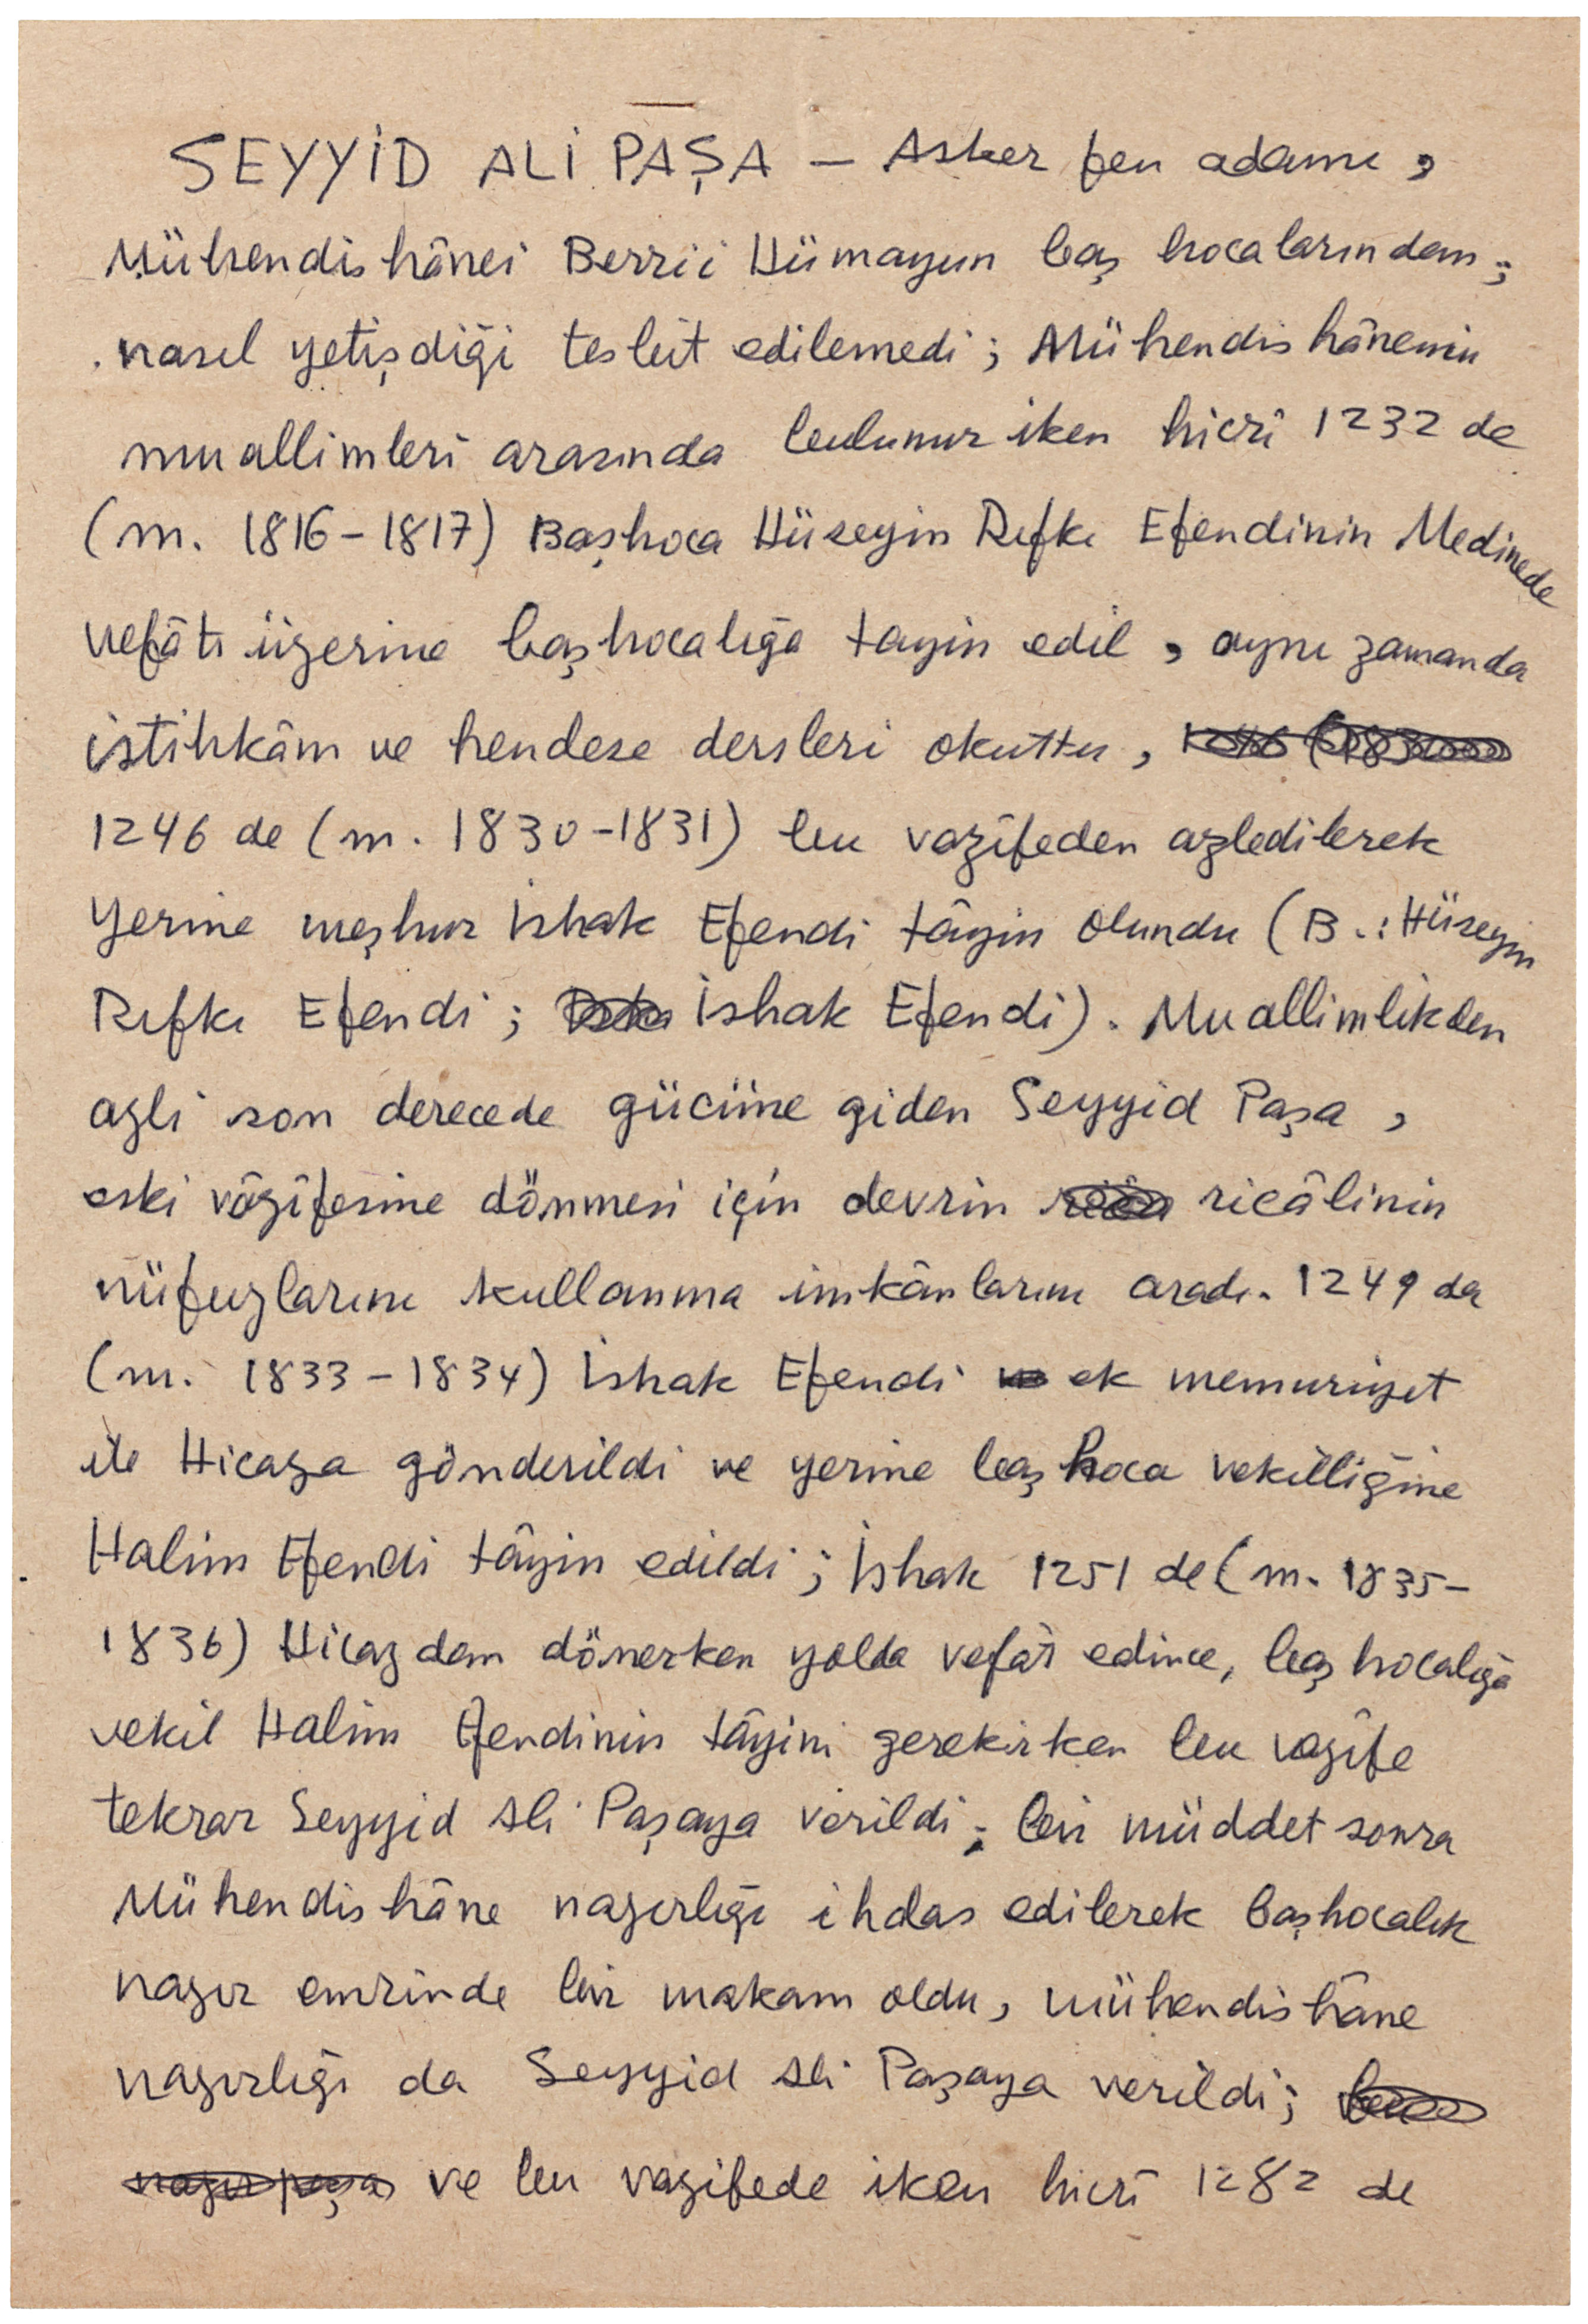 SEYYİD ALİ PAŞA — Asker fen adamı,
Mühendishânei Berrii Hümayun baş hocalarından;
nasıl yetişdiği tesbit edilemedi; Mühendishânenin
muallimleri arasında bulunur iken hicrî 1232 de
(m. 1816-1817) Başhoca Hüseyin Rıfkı Efendinin Medinede
vefâtı üzerine başhocalığa tayin edil, aynı zamanda
istihkâm ve hendese dersleri okuttu,
1246 de (m. 1830-1831) bu vazîfeden azledilerek
yerine meşhur İshak Efendi tâyin olundu (B.: Hüseyin
Rıfkı Efendi; İshak Efendi). Muallimlikden
azli son derecede gücüne giden Seyyid Paşa,
eski vâzîfesine dönmesi için devrin ricâlinin
nüfuzlarını kullanma imkânlarını aradı. 1249 da
(m. 1833-1834) İshak Efendi ek memuriyet
ile Hicaza gönderildi ve yerine başhoca vekilliğine
Halim Efendi tâyin edildi; İshak 1251 de (m. 1835-
1836) Hicazdan dönerken yolda vefât edince, baş hocalığa
vekil Halim Efendinin tâyini gerekirken bu vazîfe
tekrar Seyyid Ali Paşaya verildi; bir müddet sonra
Mühendishâne nazırlığı ihdas edilerek başhocalık
nazır emrinde bir makam oldu, mühendishâne
nazırlığı da Seyyid Ali Paşaya verildi;
ve bu vazifede iken hicrî 1282 de